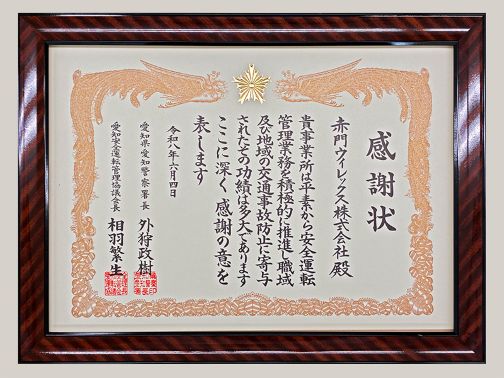 感謝状
赤門ウイレックス株式会社 殿
貴事業所は平素から安全運転
管理業務を積極的に推進し職域
及び地域の交通事故防止に寄与
されたその功績は多大であります
ここに深く感謝の意を
表します
令和八年六月四日
愛知県愛知警察署長 外狩政樹
愛知安全運転管理協議会長 相羽繁生